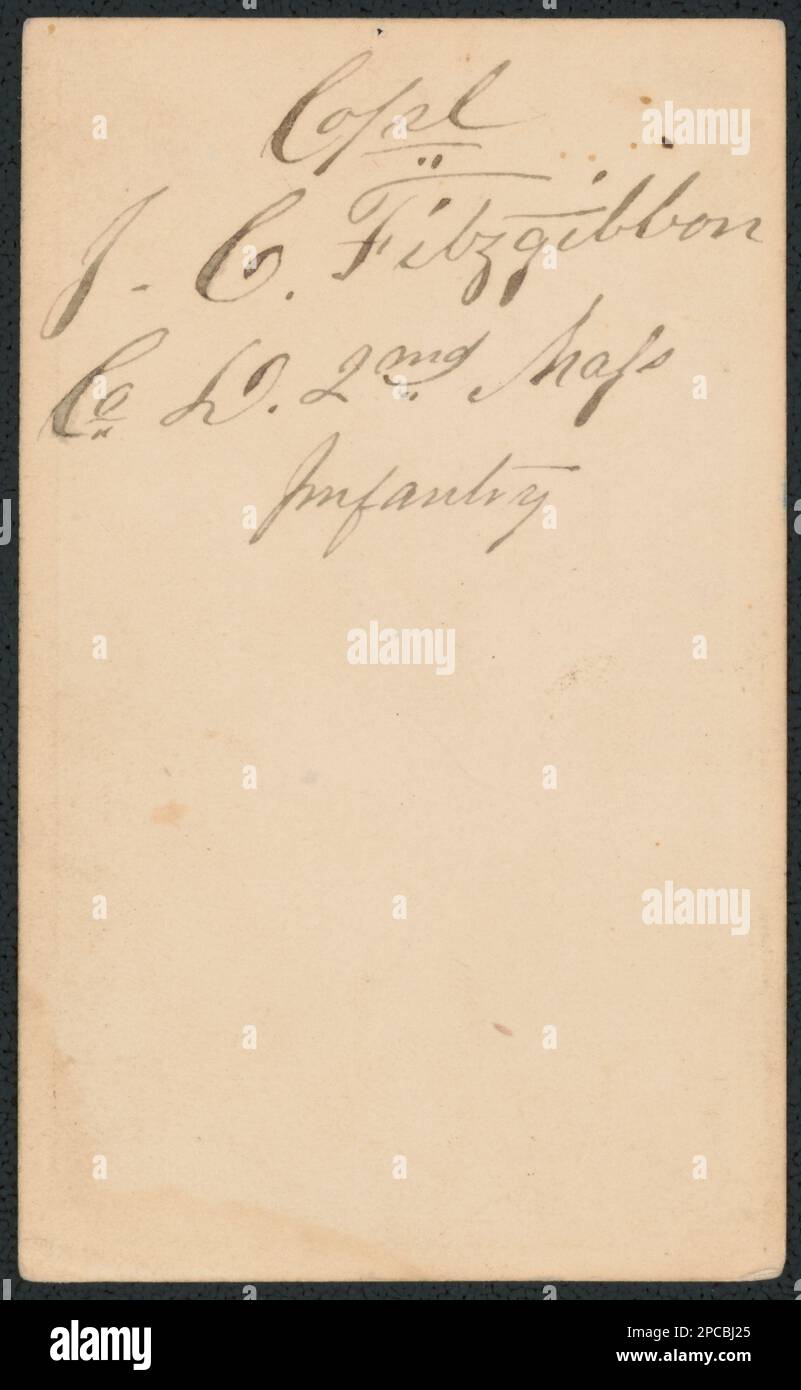 Corpl
J. C. Fitzgibbon
Co D. 2nd Mass
Infantry
alamy
Image ID: 2PCBJ25
www.alamy.com